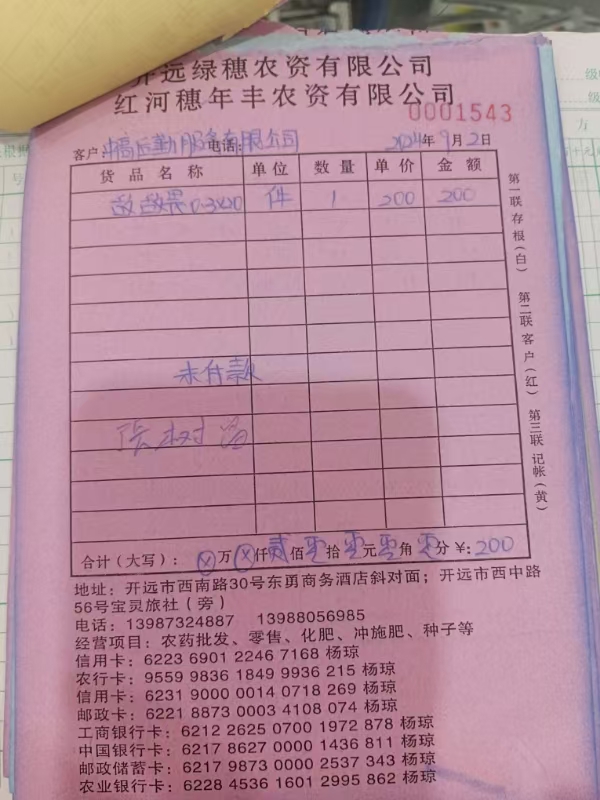 开远绿穗农资有限公司
红河穗年丰农资有限公司
0001543
客户:中高后勤服务有限公司 电话: 2024年9月2日
货品名称 单位 数量 单价 金额
敌敌畏0.3x20 件 1 200 200
未付款
张树海
合计(大写): ⓧ万ⓧ仟贰佰零拾零元零角零分 ¥:200
第一联存根(白) 第二联客户(红) 第三联记帐(黄)
地址:开远市西南路30号东勇商务酒店斜对面;开远市西中路
56号宝灵旅社(旁)
电话:13987324887 13988056985
经营项目:农药批发、零售、化肥、冲施肥、种子等
信用卡:6223 6901 2246 7168 杨琼
农行卡:9559 9836 1849 9936 215 杨琼
信用卡:6231 9000 0014 0718 269 杨琼
邮政卡:6221 8873 0003 4108 074 杨琼
工商银行卡:6212 2625 0700 1972 878 杨琼
中国银行卡:6217 8627 0000 1436 811 杨琼
邮政储蓄卡:6217 9873 0000 2537 343 杨琼
农业银行卡:6228 4536 1601 2995 862 杨琼